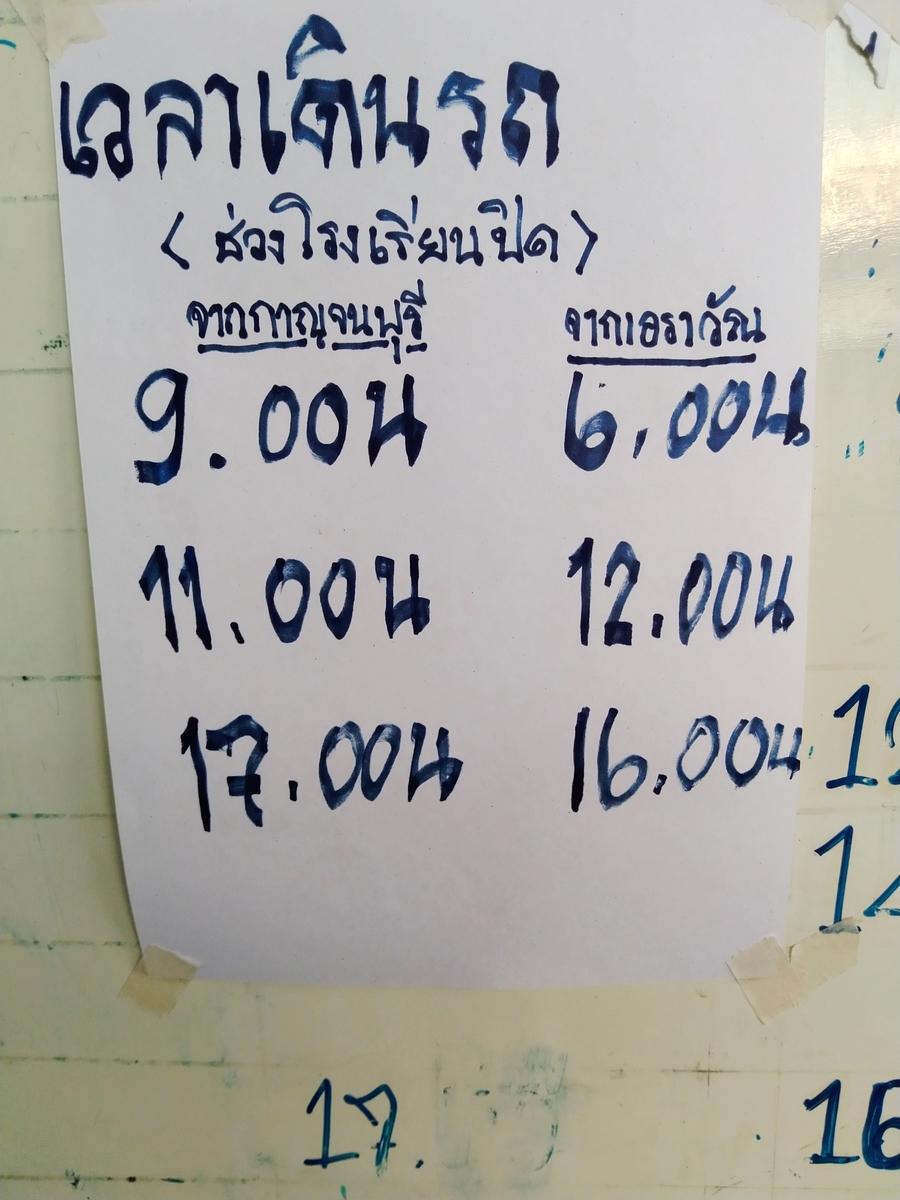 เวลาเดินรถ
< ช่วงโรงเรียนปิด >
จากกาญจนบุรี จากเอราวัณ
9.00น 6.00น
11.00น 12.00น
17.00น 16.00น
17. 16